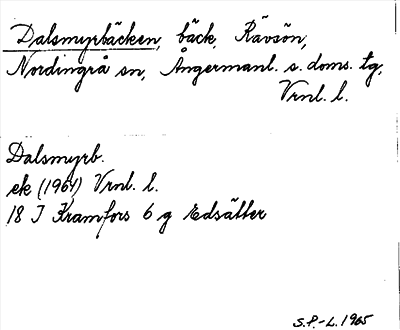 Dalsmyrbäcken, bäck, Rävsön,
Nordingrå sn, Ångermanl. s. doms. tg,
Vrnl. l.
Dalsmyrb.
ek (1961) Vrnl. l.
18 J Kramfors 6 g Edsätter
S.P.-L. 1965